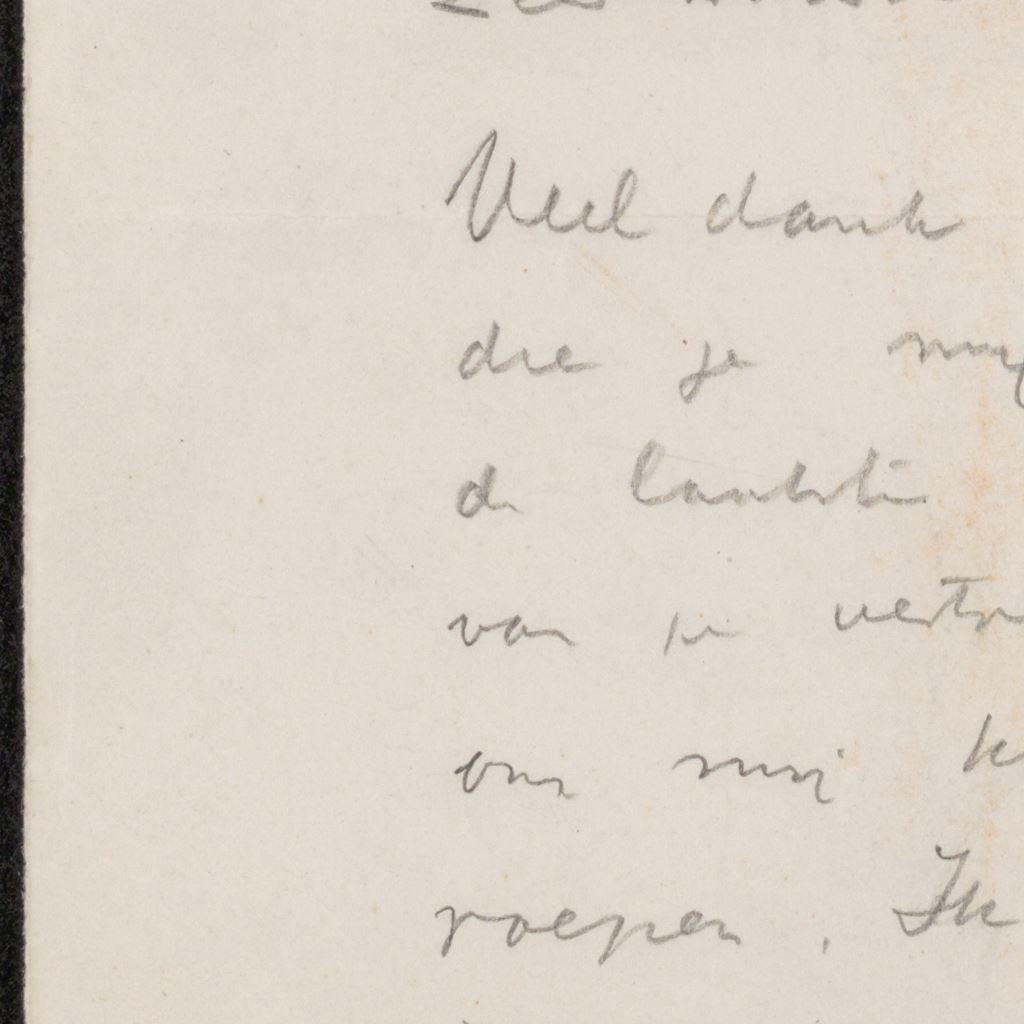 Veel dank
die je
de laatste
van je
om mij
roepen. Ik